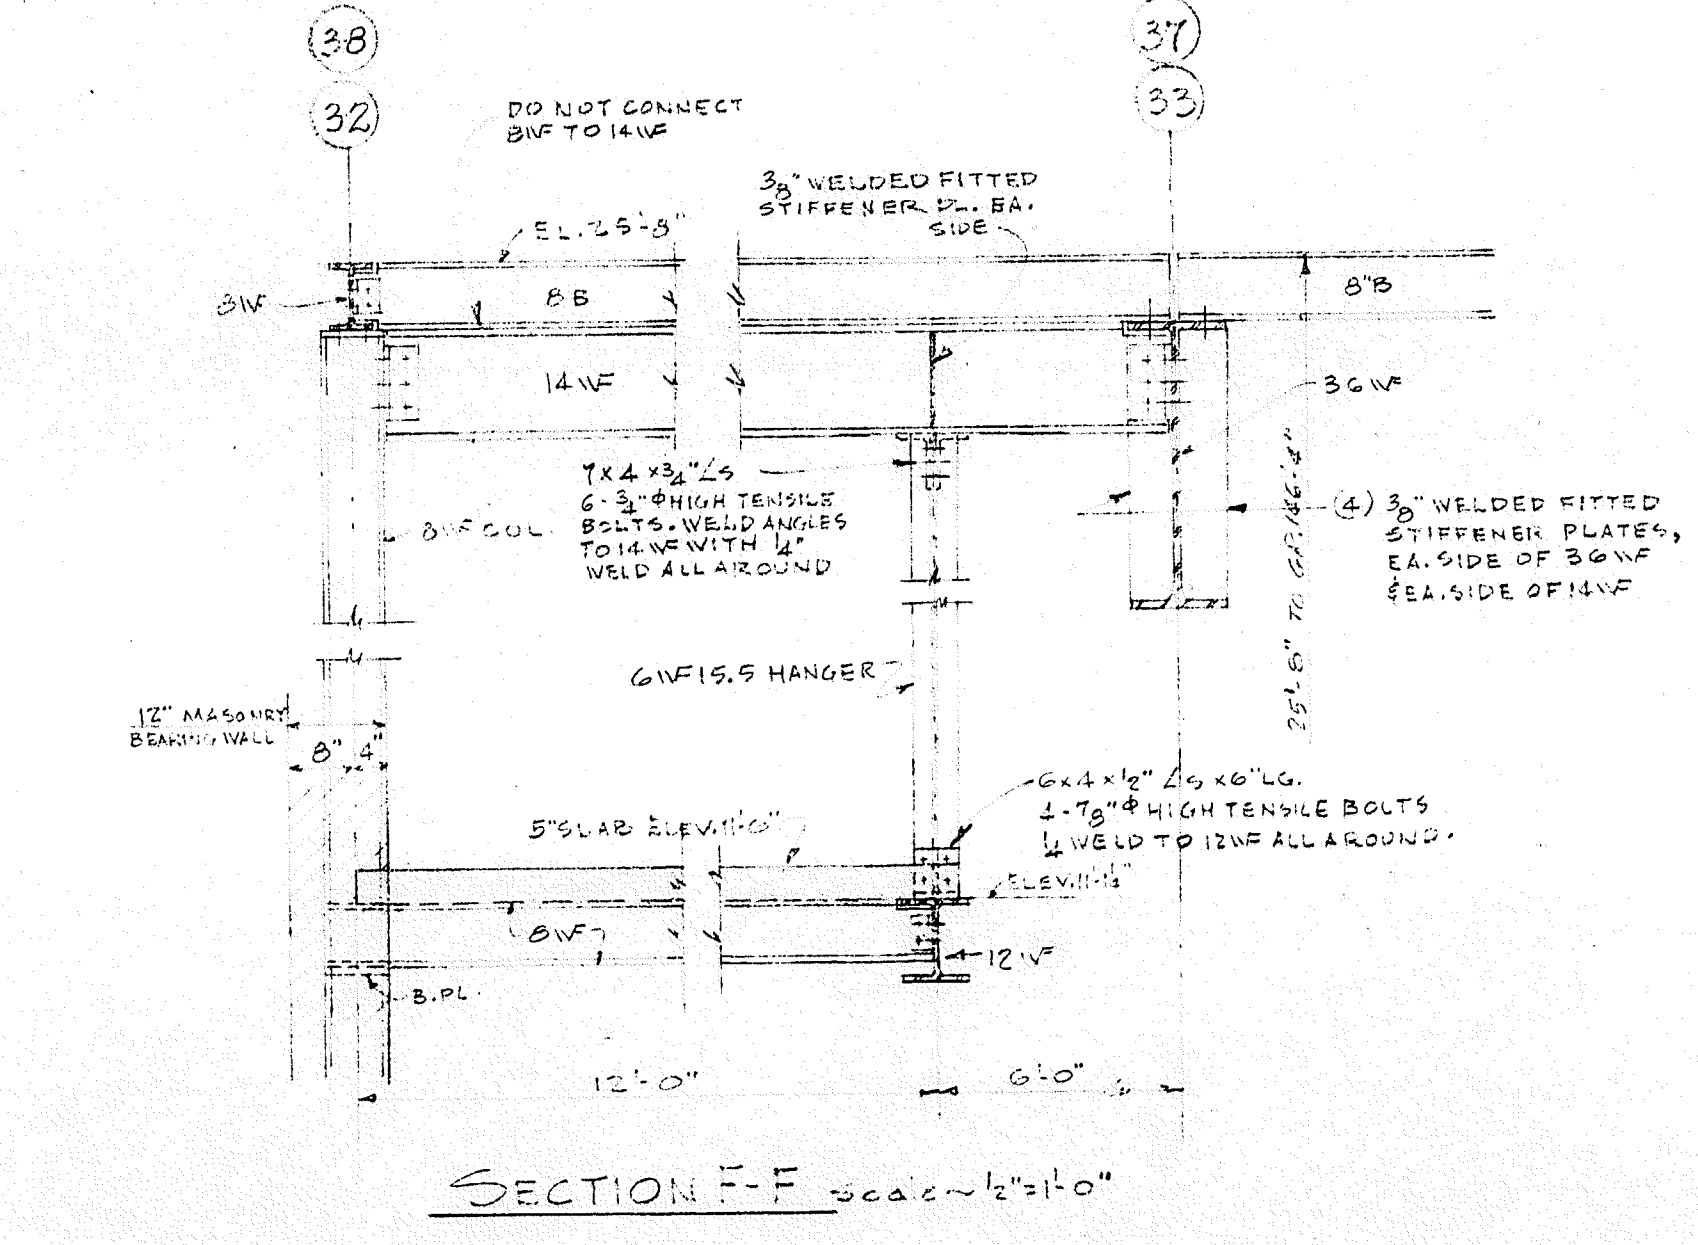 38
37
32
33
DO NOT CONNECT
8WF TO 14WF
3/8" WELDED FITTED
STIFFENER PL. EA.
SIDE
EL. 25'-8"
8WF
8B
8"B
14WF
36WF
7 x 4 x 3/4" ∠s
6 - 3/4" φ HIGH TENSILE
BOLTS. WELD ANGLES
TO 14WF WITH 1/4"
WELD ALL AROUND
8WF COL.
(4) 3/8" WELDED FITTED
STIFFENER PLATES,
EA. SIDE OF 36WF
& EA. SIDE OF 14WF
25'-8" TO GR.
6WF15.5 HANGER
12" MASONRY
BEARING WALL
8" 4"
6x4x1/2" ∠s x6" LG.
4-7/8" φ HIGH TENSILE BOLTS
1/4 WELD TO 12WF ALL AROUND.
5" SLAB ELEV.
ELEV.
8WF
12WF
B.PL.
12'-0"
6'-0"
SECTION F-F scale ~ 1/2"=1'-0"